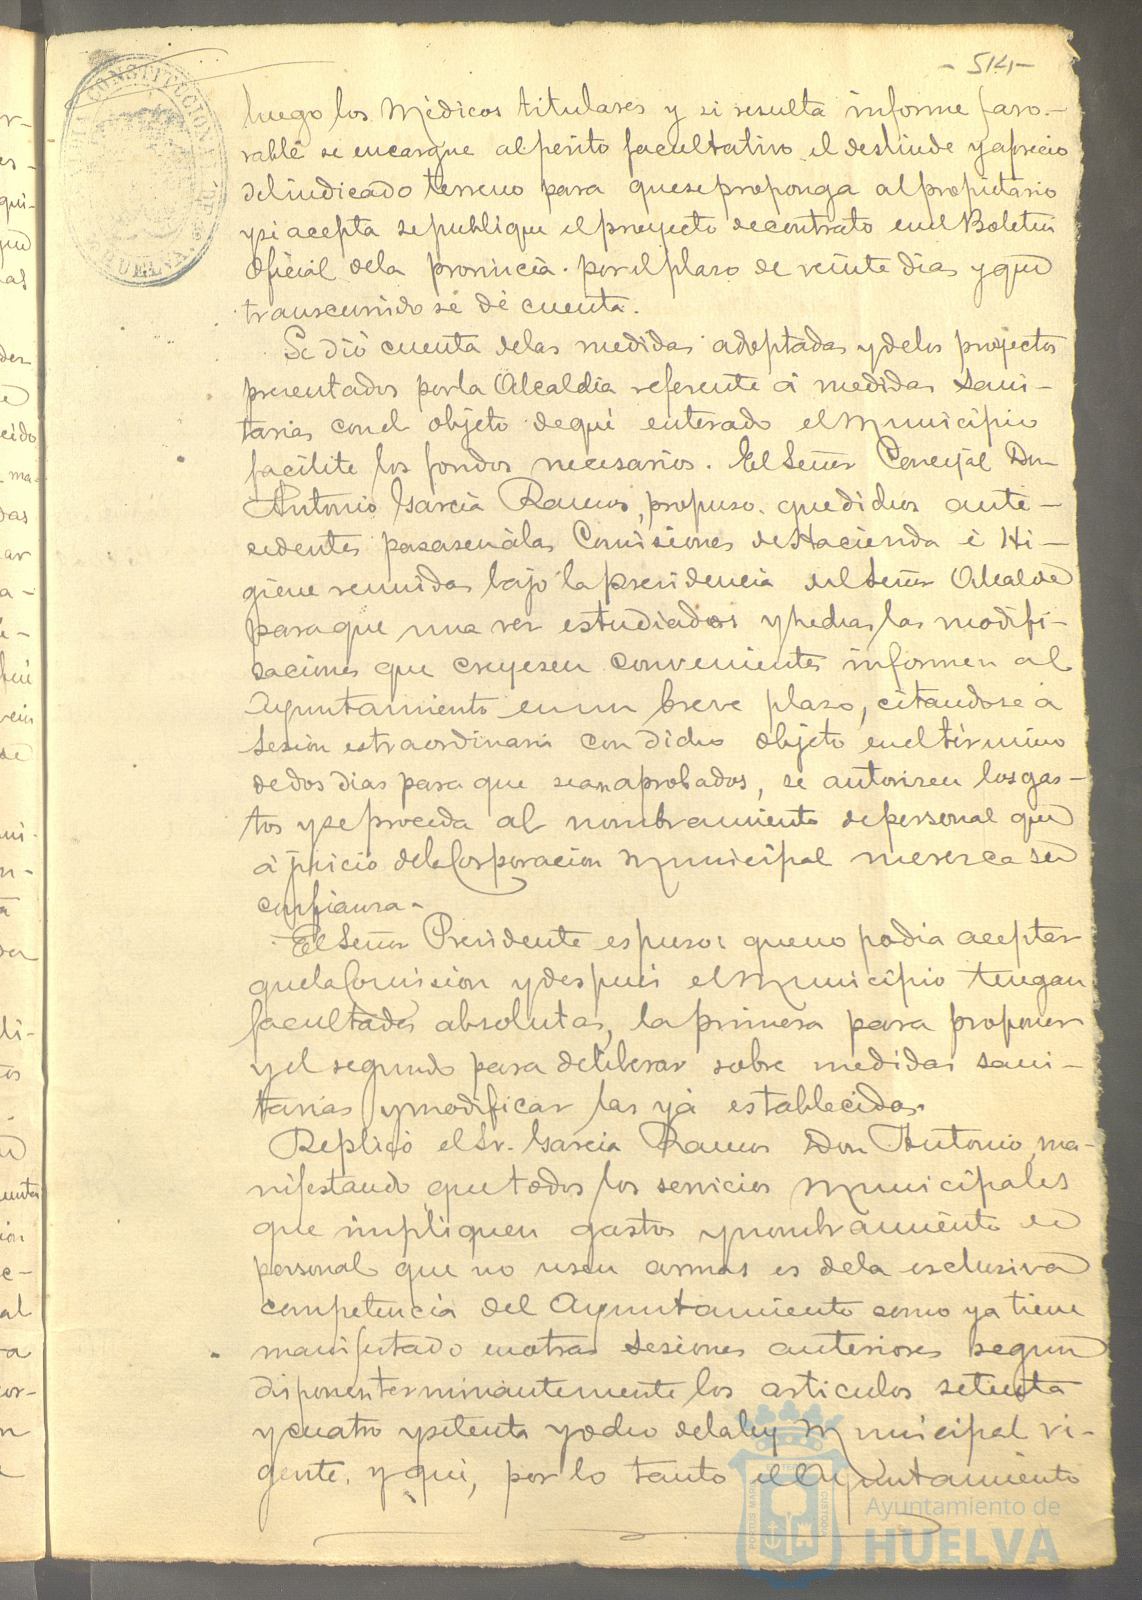 - 514 -
ALCALDIA CONSTITUCIONAL DE HUELVA
luego los Médicos titulares y si resulta informe favo-
rable se encargue al perito facultativo el deslinde y aprecio
del indicado terreno para que se proponga al propietario
y si acepta se publique el proyecto de contrato en el Boletin
Oficial de la provincia por el plazo de veinte dias y que
transcurrido se dé cuenta.
Se dió cuenta de las medidas adoptadas y de los proyectos
presentados por la Alcaldia referente á medidas sani-
tarias con el objeto de que enterado el Municipio
facilite los fondos necesarios. El Señor Concejal Don
Antonio Garcia Ramos, propuso que dichos ante-
cedentes pasasen á las Comisiones de Hacienda é Hi-
giene reunidas bajo la presidencia del Señor Alcalde
para que una vez estudiados y hechas las modifi-
caciones que creyesen convenientes informen al
Ayuntamiento en un breve plazo, citandose á
sesion estraordinaria con dicho objeto en el término
de dos dias para que sean aprobados, se autoricen los gas-
tos y se proceda al nombramiento de personal que
á juicio de la Corporacion Municipal merezca su
confianza.
El Señor Presidente espuso: que no podia aceptar
que la Comision y despues el Municipio tengan
facultades absolutas, la primera para proponer
y el segundo para deliberar sobre medidas sani-
tarias y modificar las yá establecidas.
Replicó el Sr. Garcia Ramos Don Antonio, ma-
nifestando que todos los servicios Municipales
que impliquen gastos y nombramiento de
personal que no usen armas es de la esclusiva
competencia del Ayuntamiento como ya tiene
manifestado en otras sesiones anteriores segun
disponen terminantemente los articulos setenta
y cuatro y setenta y ocho de la ley Municipal vi-
gente, y que, por lo tanto el Ayuntamiento
Ayuntamiento de
HUELVA